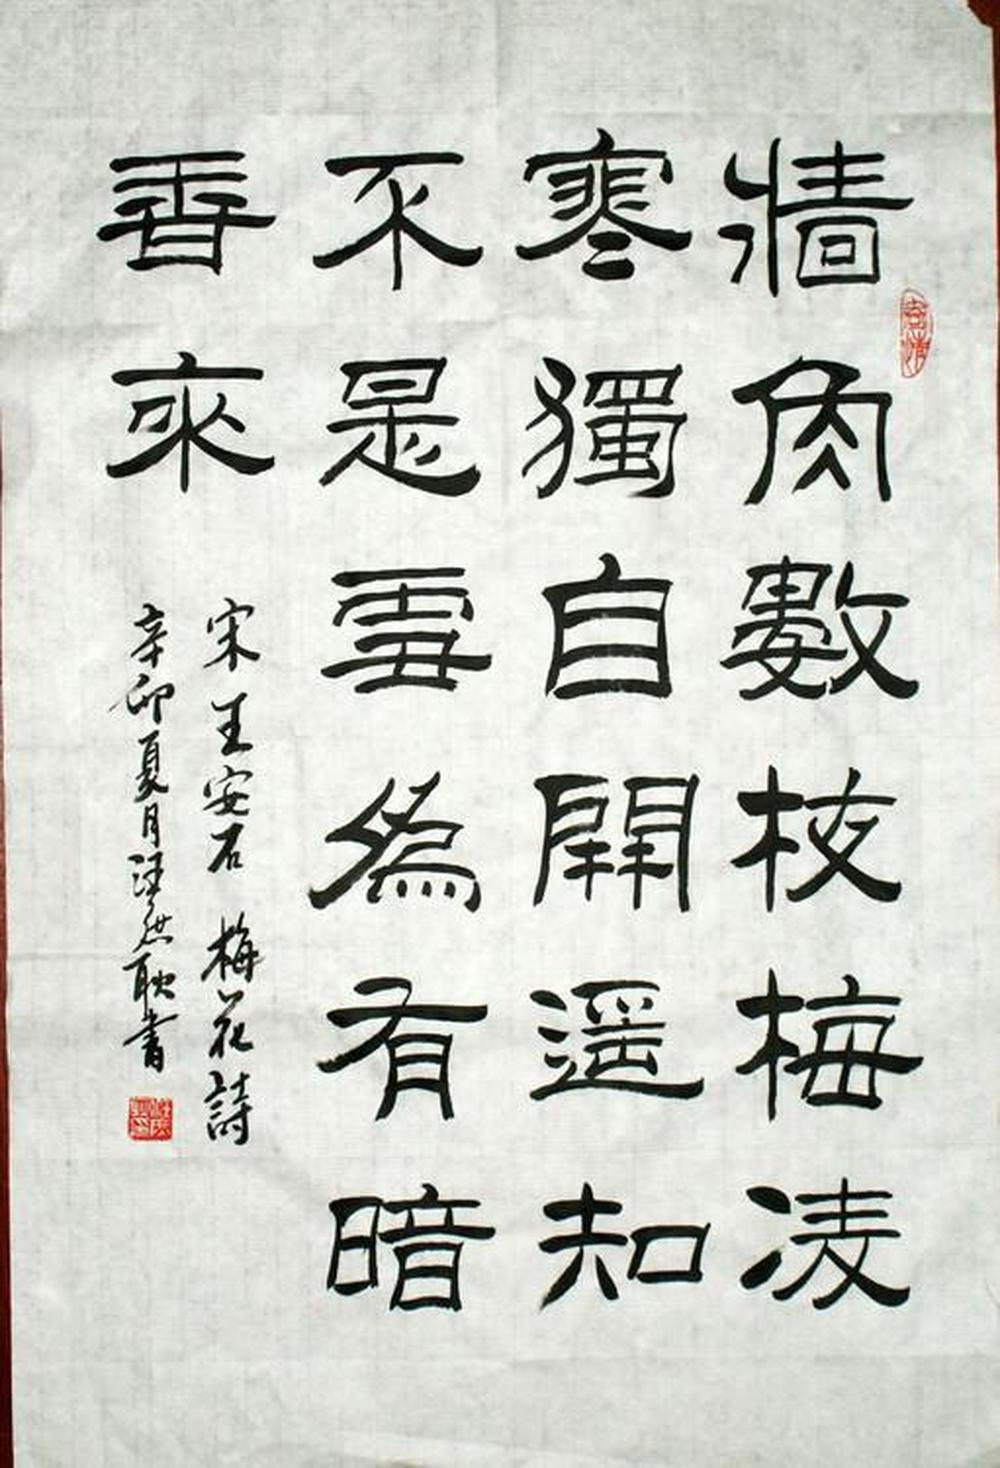 牆角數枝梅凌
寒獨自開遥知
不是雪為有暗
香來
宋王安石 梅花詩
辛卯夏月汪焘耿書
寄情